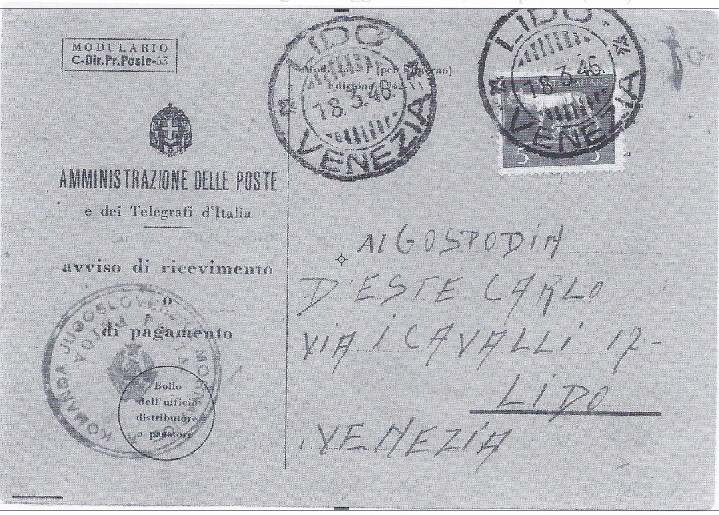 MODULARIO
C-Dir.Pr.Poste-53
AMMINISTRAZIONE DELLE POSTE
e dei Telegrafi d'Italia
avviso di ricevimento
o
di pagamento
Bollo
dell'ufficio
distributore
o pagatore
KOMANDA JUGOSLOVENSKE MORNARICE
LIDO
18.3.46.
VENEZIA
LIDO
18.3.46.
VENEZIA
Al GOSPODIN
D'ESTE CARLO
VIA I CAVALLI 17-
LIDO
VENEZIA